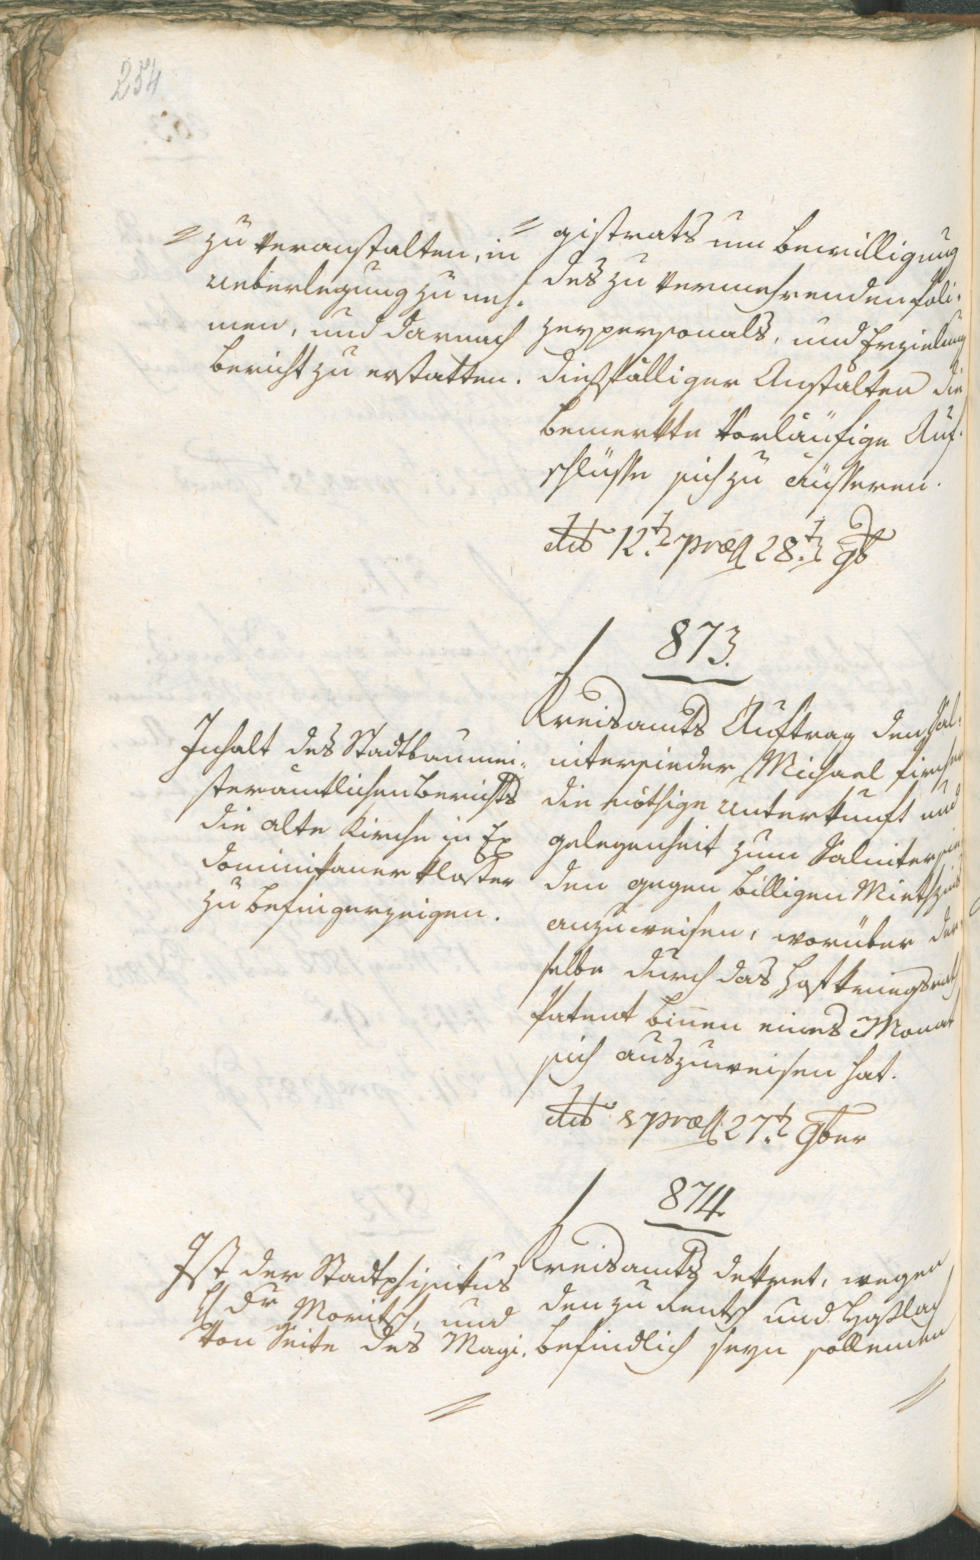 254
= zu veranstalten, in
Ueberlegung zu neh-
men, und darnach
Bericht zu erstatten.
= gistrats um Bewilligung
des zu vermehrenden Poli-
zeypersonals, und Erzielung
dießfälliger Anstalten die
bemerkte vorläufige Auf-
schlüsse sich zu äusseren.
dtto 12t praes 28t 9b
873.
Inhalt des Stadtbaumei-
sterämtlichen Berichts
die alte Kirche in Ex
dominikaner Kloster
zu
Kreisamts Auftrag den Sal-
nitersieder Michael
die nöthige Unterkunft und
gelegenheit zum Salitersie
den gegen billigen Miethzins
anzuweisen, worüber der-
selbe durch das Hofkriegsrath
Patent binen eines Monat
sich auszuweisen hat.
dtto praes 27t 9ber
874.
Ist der Stadtphisikus
H Dr Moritsch, und
von Seite des Magi-
=
Kreisamts dekret, wegen
den zu Rentsch und Haslach
befindlich seyn sollenden
=